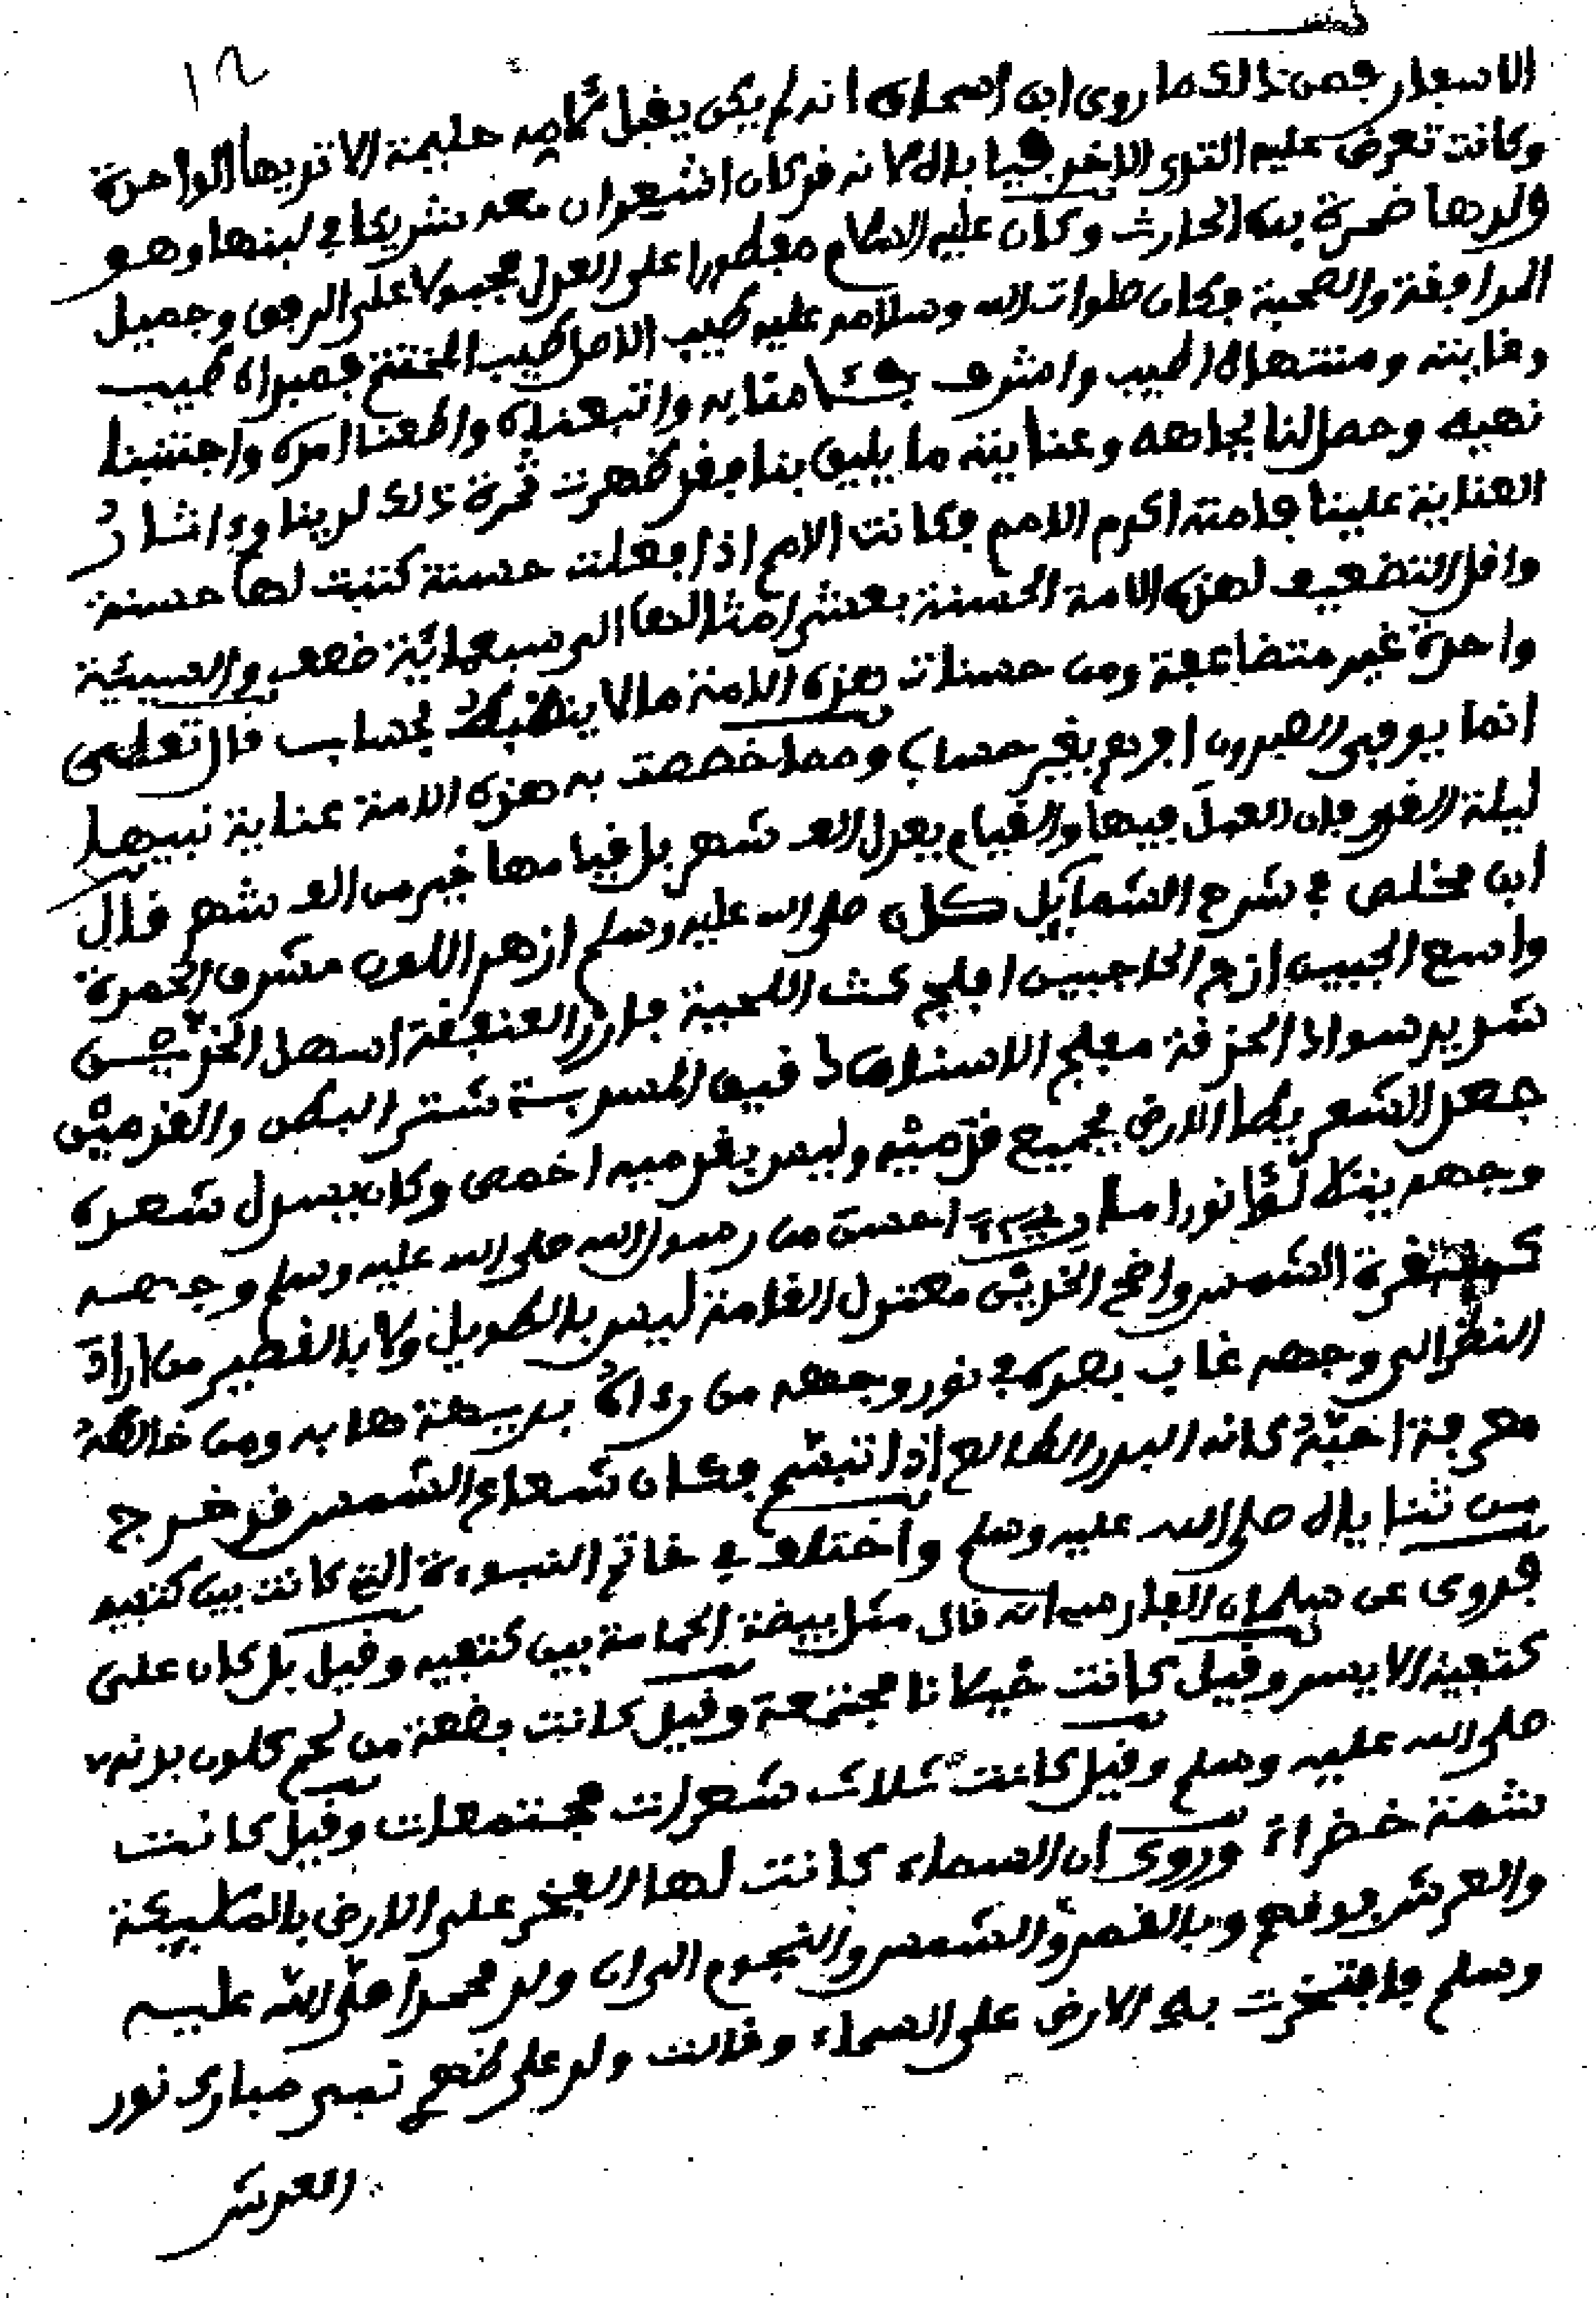 ١٢
الاسفار فمن ذالك ما روى ابن اسحاق انه لم يكن يقبل من حليمة الا ثديها الواحدة
وكانت تعرض عليه الثدي الاخر فياباه كانه قد كان اشعر ان معه شريكا في لبنها وهو
ولدها ضمرة بن الحارث وكان عليه السلام مفطورا على العدل مجبولا على الرفق وجميل
المرافقة والصحبة فكان صلوات الله وسلامه عليه طيب الاصل طيب المختتم فمبداه طيب
وغايته ومنتهاه اطيب واشرف متابه واتبعناه واطعنا امره واجتنبنا
نهيه وحصل لنا بجاهه وعنايته ما يليق بنا فقد ظهرت ثمرة ذلك لدينا وءاثار
العناية علينا فامته اكرم الامم فكانت الامم اذا فعلت حسنة كتبت لها حسنة
واقل التضعيف لهذه الامة الحسنة بعشر امثالها الى سبعمائة ضعف والسيئة
واحدة غير متضاعفة ومن حسنات هذه الامة مالا ينضبط بحساب قال تعلى
انما يوفى الصبرون اجرهم بغير حساب ومما خصصت به هذه الامة عناية نبيها
ليلة القدر فان العمل فيها والقيام يعدل الف شهر بل قيامها خير من الف شهر قال
ابن مخلص في شرح الشمايل كان صلى الله عليه وسلم ازهر اللون مشرق الحمرة
واسع الجبين ازج الحاجبين افلج كث اللحية بارز العنفقة اسهل الخديين
شديد سواد الحدقة مفلج الاسنان دقيق المسربة شتر البطن والقدمين
جعل الشعر يطا الارض بجميع قدميه وليس بقدميه اخمص وكان يسدل شعره
وجهه يتلالؤا نورا احسن من رسول الله صلى الله عليه وسلم وجهه
الشمس واضح الخدين معتدل القامة ليس بالطويل ولا بالقصير من اراد
النظر الى وجهه غاب بصره في نور وجهه من رءاه بديهة هابه ومن خالطه
معرفة احبه كانه البدر الطالع اذا تبسم فكان شعاع الشمس قد خرج
من ثناياه صلى الله عليه وسلم واختلف في خاتم النبوءة التي كانت بين كتفيه
فروى عن سلمان الفارسي انه قال مثل بيضة الحمامة بين كتفيه وقيل بل كان على
كتفيه الايسر وقيل كانت خيلانا مجتمعة وقيل كانت بضعة من لحم كلون بدنه
صلى الله عليه وسلم وقيل كانت ثلاث شعرات مجتمعات وقيل كانت
شمة خضراء وروى ان السماء كانت لها الفخر على الارض بالملايكة
والعرش فوقهم وبالقمر والشمس والنجوم الى ان ولد محمد صلى الله عليه
وسلم فافتخرت به الارض على السماء وقالت ولد على ظهري نبي مبارك نور
العرش